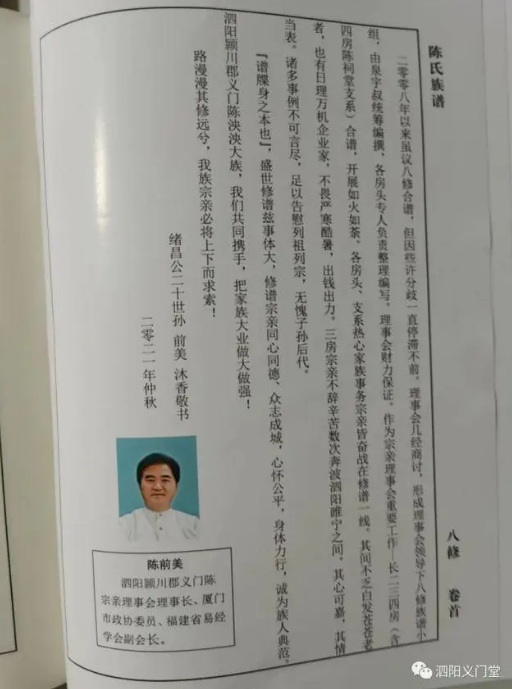 陈氏族谱
八修 卷首
二零零八年以来虽议八修合谱，但因些许分歧一直停滞不前。理事会几经商讨，形成理事会领导下八修族谱小
组，由泉宇叔统筹编撰，各房头专人负责整理编写。理事会财力保证。作为宗亲理事会重要工作—长二三四房（含
四房陈祠堂支系）合谱，开展如火如荼。各房头、支系热心家族事务宗亲皆奋战在修谱一线。其间不乏白发苍苍老
者，也有日理万机企业家，不畏严寒酷暑，出钱出力。三房宗亲不辞辛苦数次奔波泗阳睢宁之间。其心可嘉，其情
当表。诸多事例不可言尽，足以告慰列祖列宗，无愧子孙后代。
『谱牒身之本也』，盛世修谱兹事体大，修谱宗亲同心同德、众志成城，心怀公平，身体力行，诚为族人典范。
泗阳颍川郡义门陈泱泱大族，我们共同携手，把家族大业做大做强！
路漫漫其修远兮，我族宗亲必将上下而求索！
绪昌公二十世孙 前美 沐香敬书
二零二一年仲秋
陈前美
泗阳颍川郡义门陈
宗亲理事会理事长、厦门
市政协委员、福建省易经
学会副会长。
泗阳义门堂